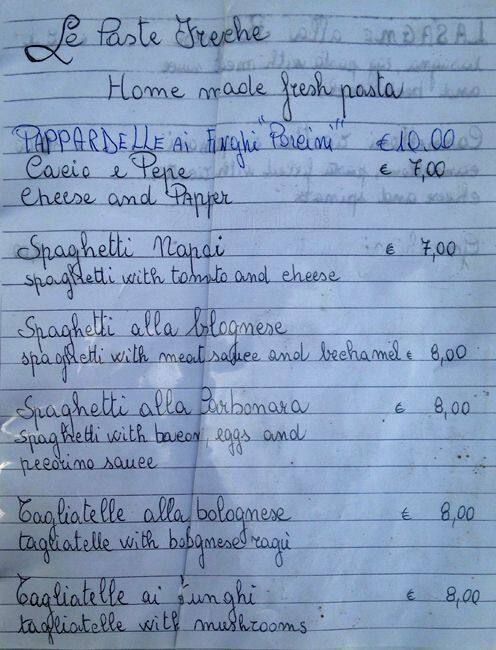 Le Paste Fresche
Home made fresh pasta
PAPPARDELLE Ai Funghi "Porcini" €10.00
Cacio e Pepe € 7,00
Cheese and Papper
Spaghetti Napoi € 7,00
spaghetti with tomato and cheese
Spaghetti alla bolognese
spaghetti with meat sauce and bechamel € 8,00
Spaghetti alla Carbonara € 8,00
spaghetti with bacon, eggs and
pecorino sauce
Tagliatelle alla bolognese € 8,00
tagliatelle with bolognese ragù
Tagliatelle ai funghi € 8,00
tagliatelle with mushrooms